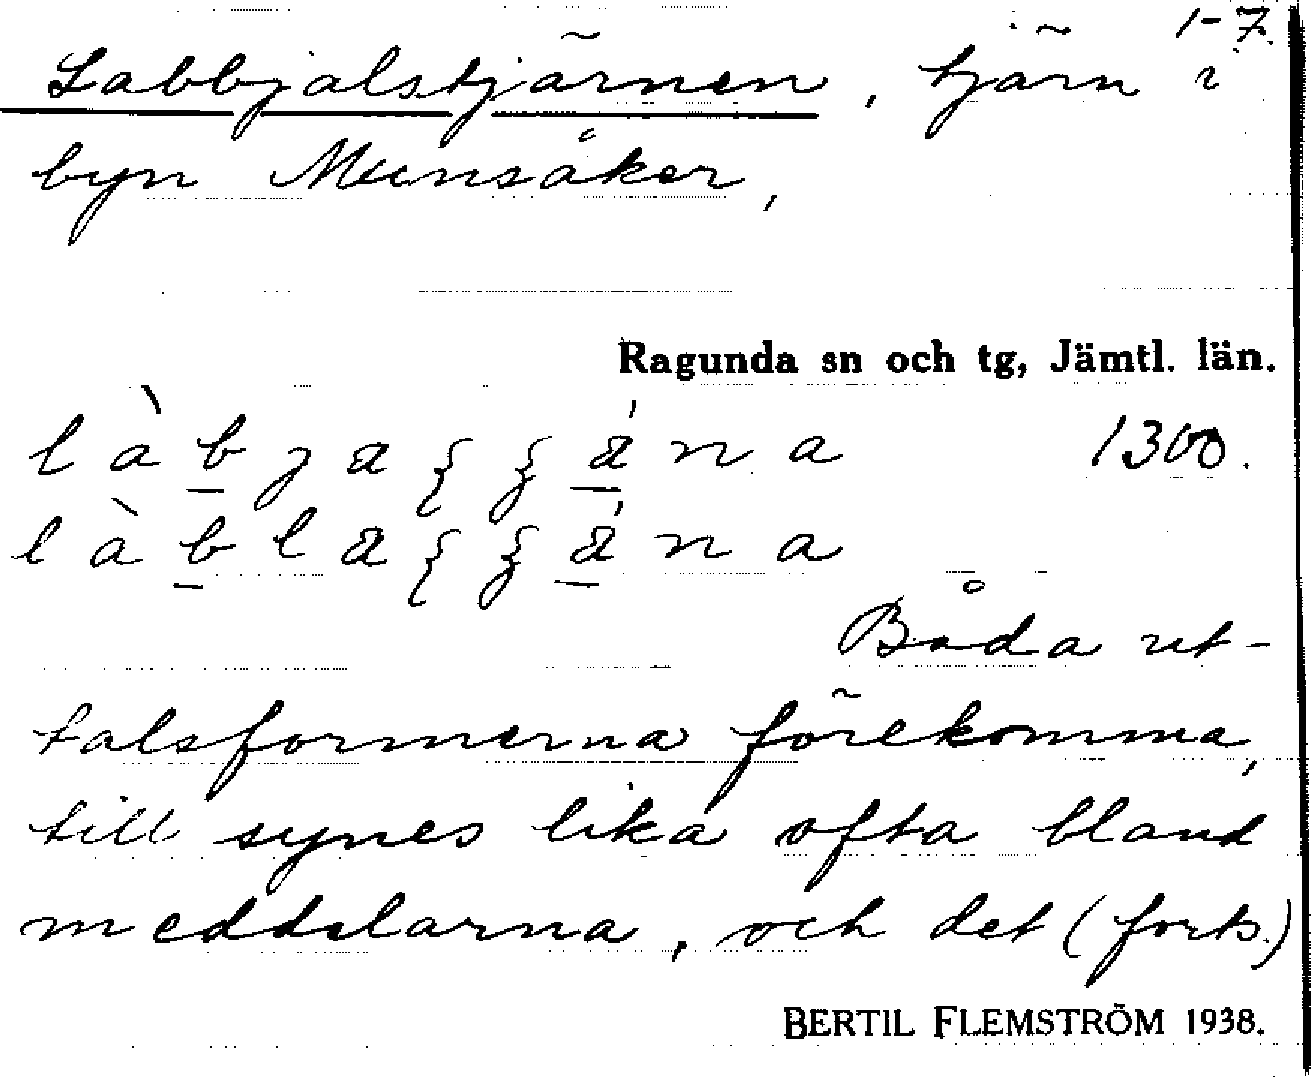 1-7.
Labbjalstjärnen, tjärn i
byn Munsåker,
Ragunda sn och tg, Jämtl. län.
1300.
Båda ut-
talsformerna förekomma,
till synes lika ofta bland
meddelarna, och det (forts.)
BERTIL FLEMSTRÖM 1938.